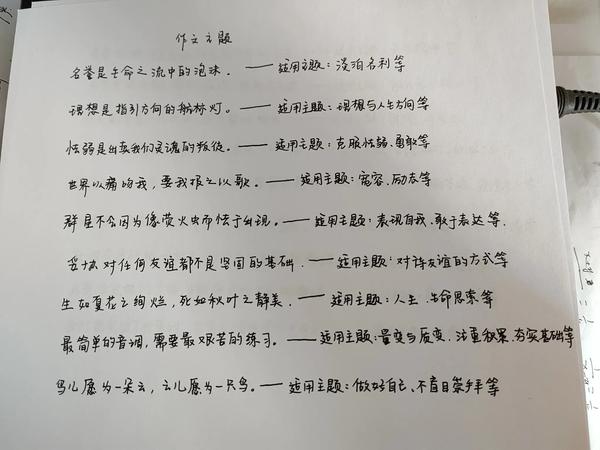 作文主题
名誉是生命之流中的泡沫。——适用主题：淡泊名利等
理想是指引方向的航标灯。——适用主题：理想与人生方向等
怯弱是出卖我们灵魂的叛徒。——适用主题：克服怯弱、勇敢等
世界以痛吻我，要我报之以歌。——适用主题：宽容、励志等
群星不会因为像萤火虫而怯于出现。——适用主题：表现自我、敢于表达等.
妥协对任何友谊都不是坚固的基础.——适用主题：对待友谊的方式等
生如夏花之绚烂，死如秋叶之静美.——适用主题：人生、生命思索等
最简单的音调，需要最艰苦的练习。——适用主题：量变与质变、注重积累、夯实基础等
鸟儿愿为一朵云，云儿愿为一只鸟。——适用主题：做好自己、不盲目崇拜等